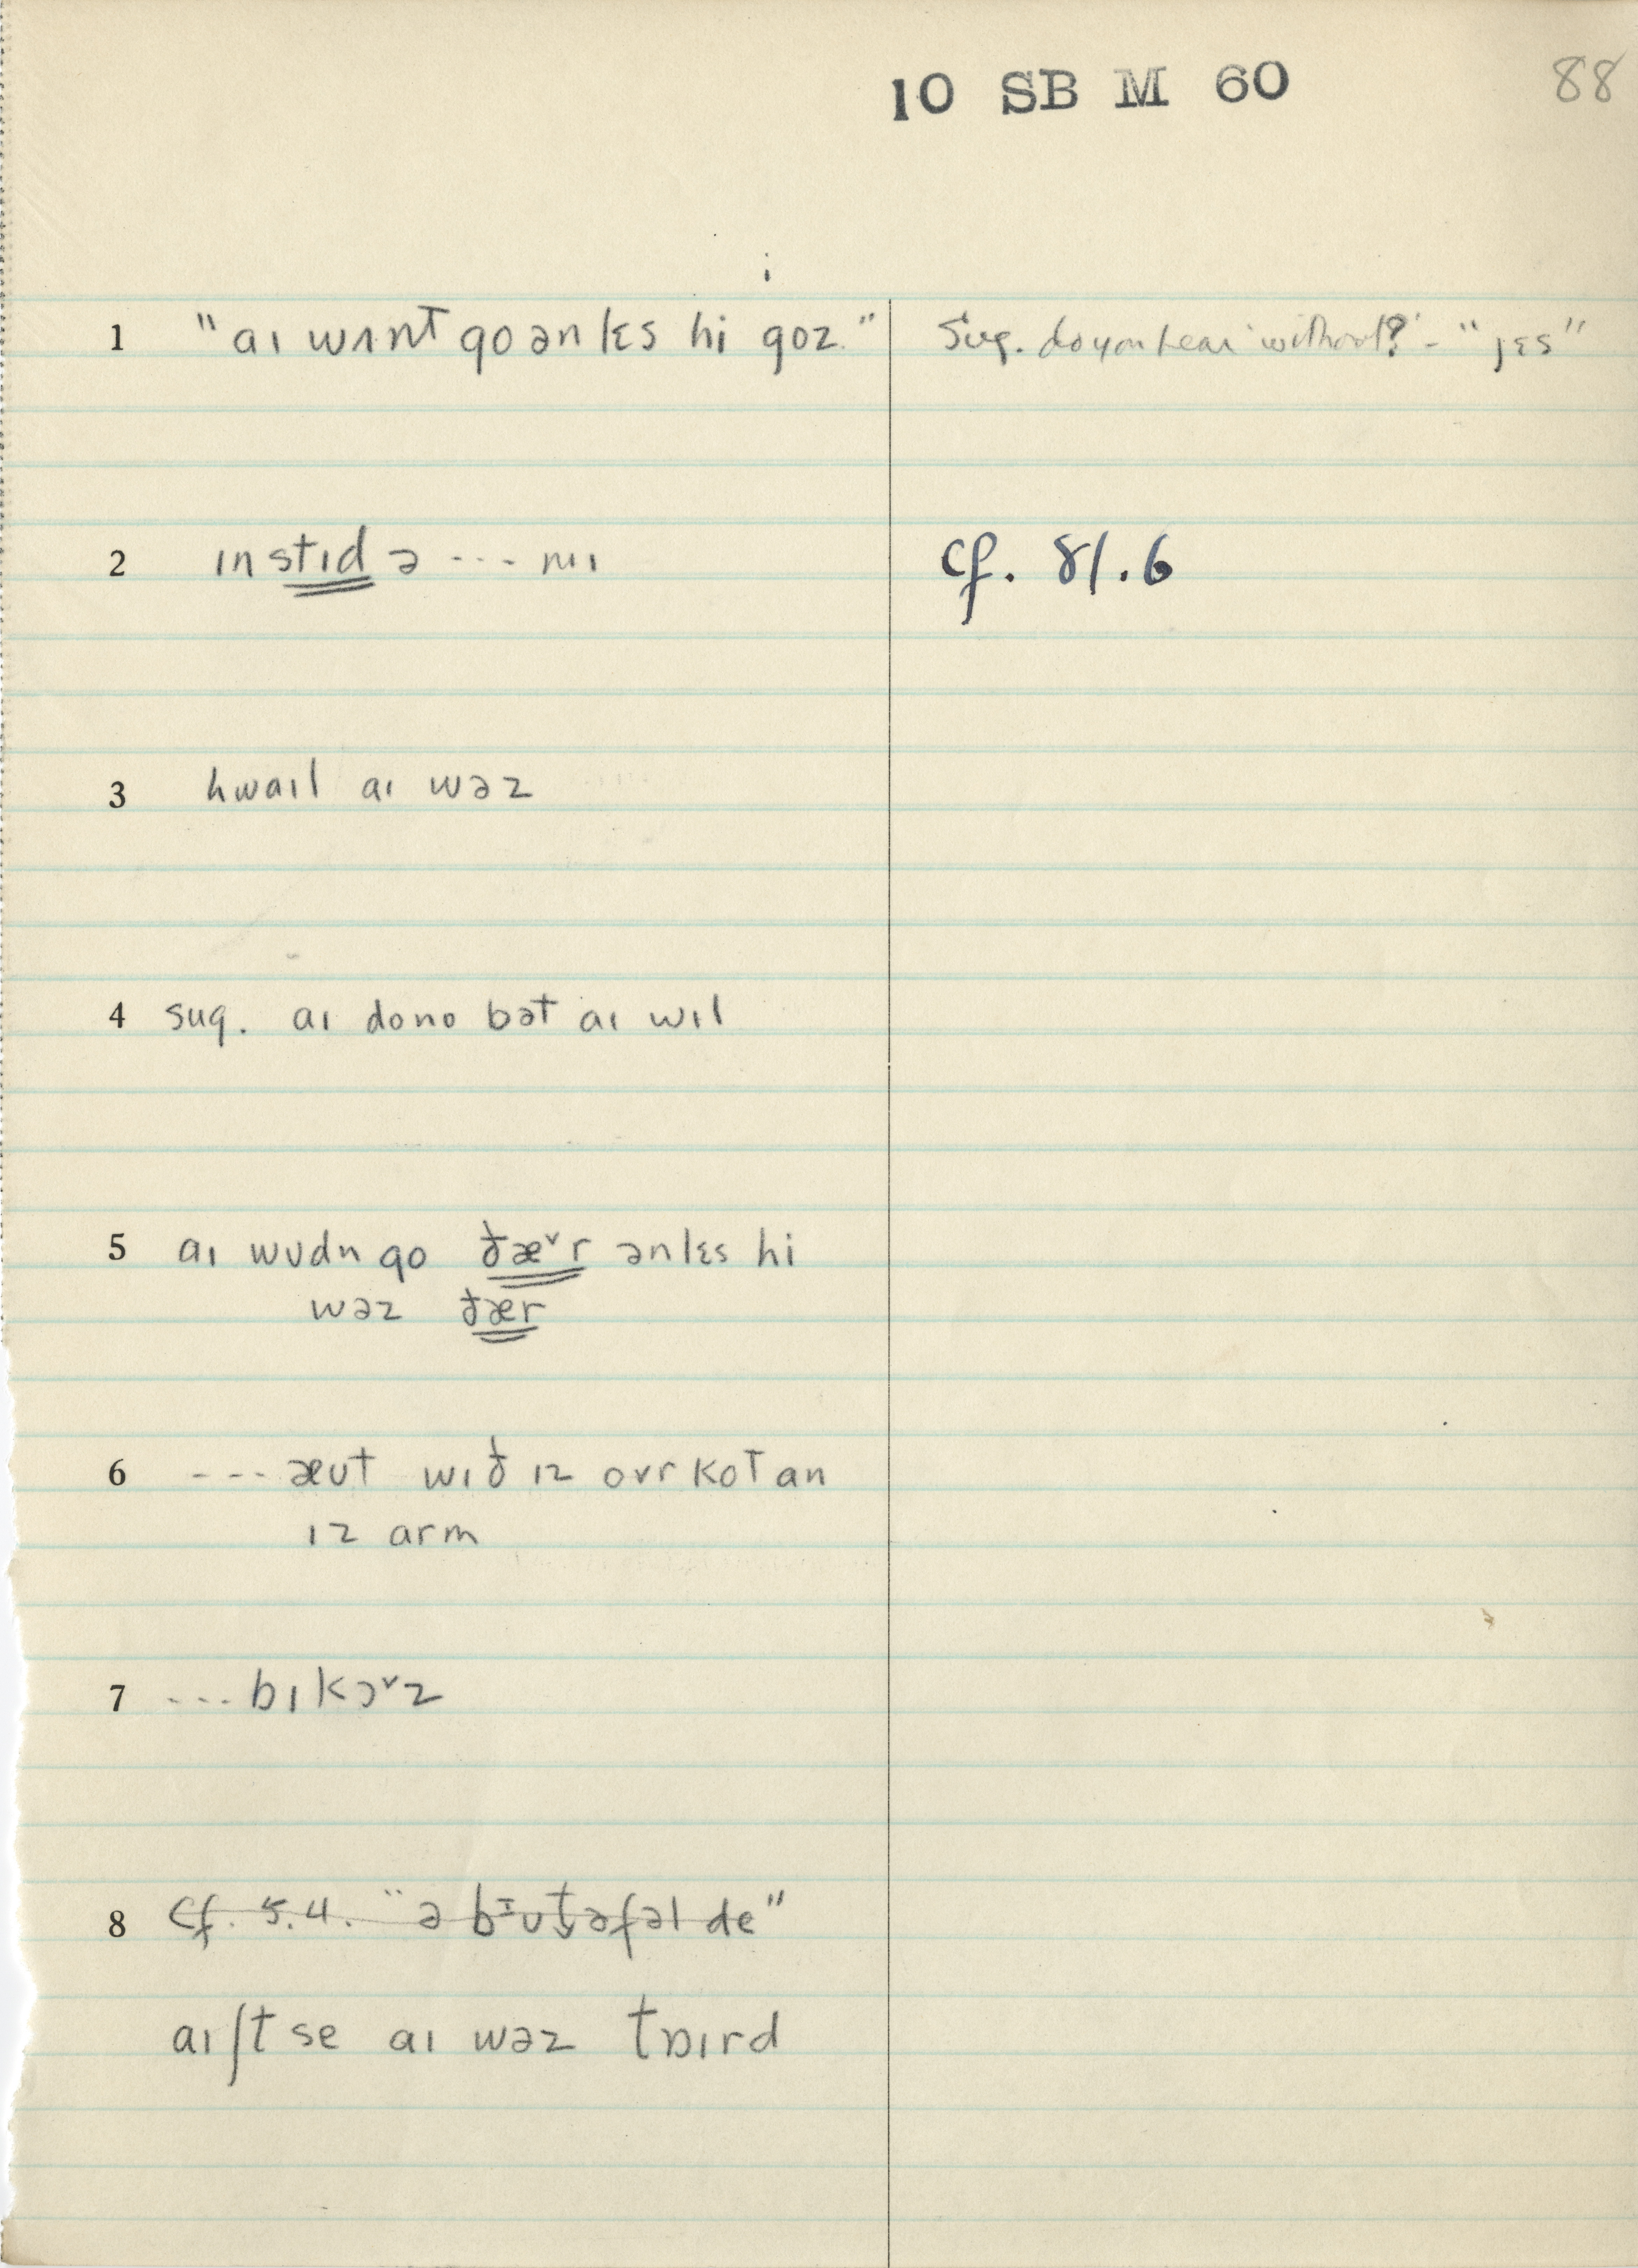 10 SB M 60 88
1 "aɪ wʌnt go ənlɛs hi goz" Sug. do you hear 'without?' - "jɛs"
2 ɪn stɪd ə --- mɪ cf. 81.6
3 hwaɪl aɪ wəz
4 sug. aɪ dono bət aɪ wɪl
5 aɪ wʊdn go ðæ˅r ənlɛs hi
wəz ðær
6 --- æʊt wɪð ɪz ovr kot an
ɪz arm
7 --- bɪkɔ˅z
8 cf. 5.4. "ə bɪut̬əfəl de"
aɪ ʃt se aɪ wəz tɒɪrd